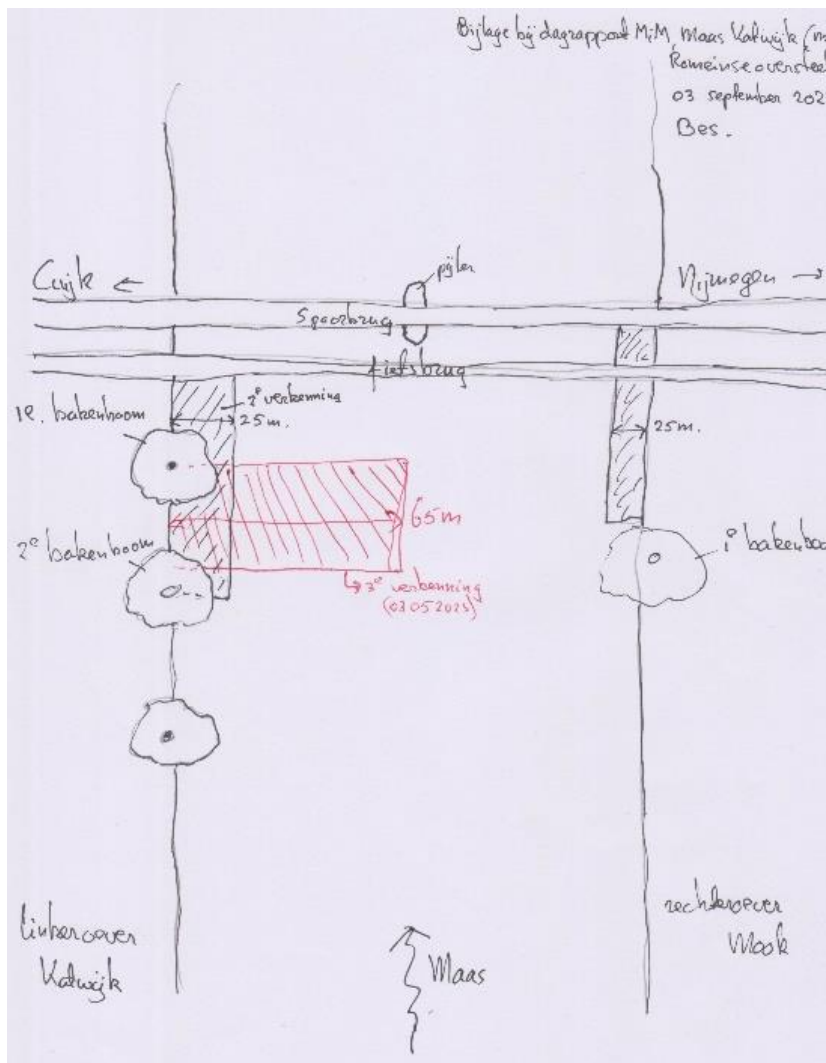 Bijlage bij dagrapport MiM, Maas Katwijk (m
Romeinse oversteek
03 september 202
Bes.
Cuijk ←
pijler
Nijmegen →
Spoorbrug
Fietsbrug
2e verkenning
25m.
1e. bakenboom
25m.
65m
2e bakenboom
1e bakenboo
3e verkenning
(03052023)
linkeroever
Katwijk
Maas
rechteroever
Mook